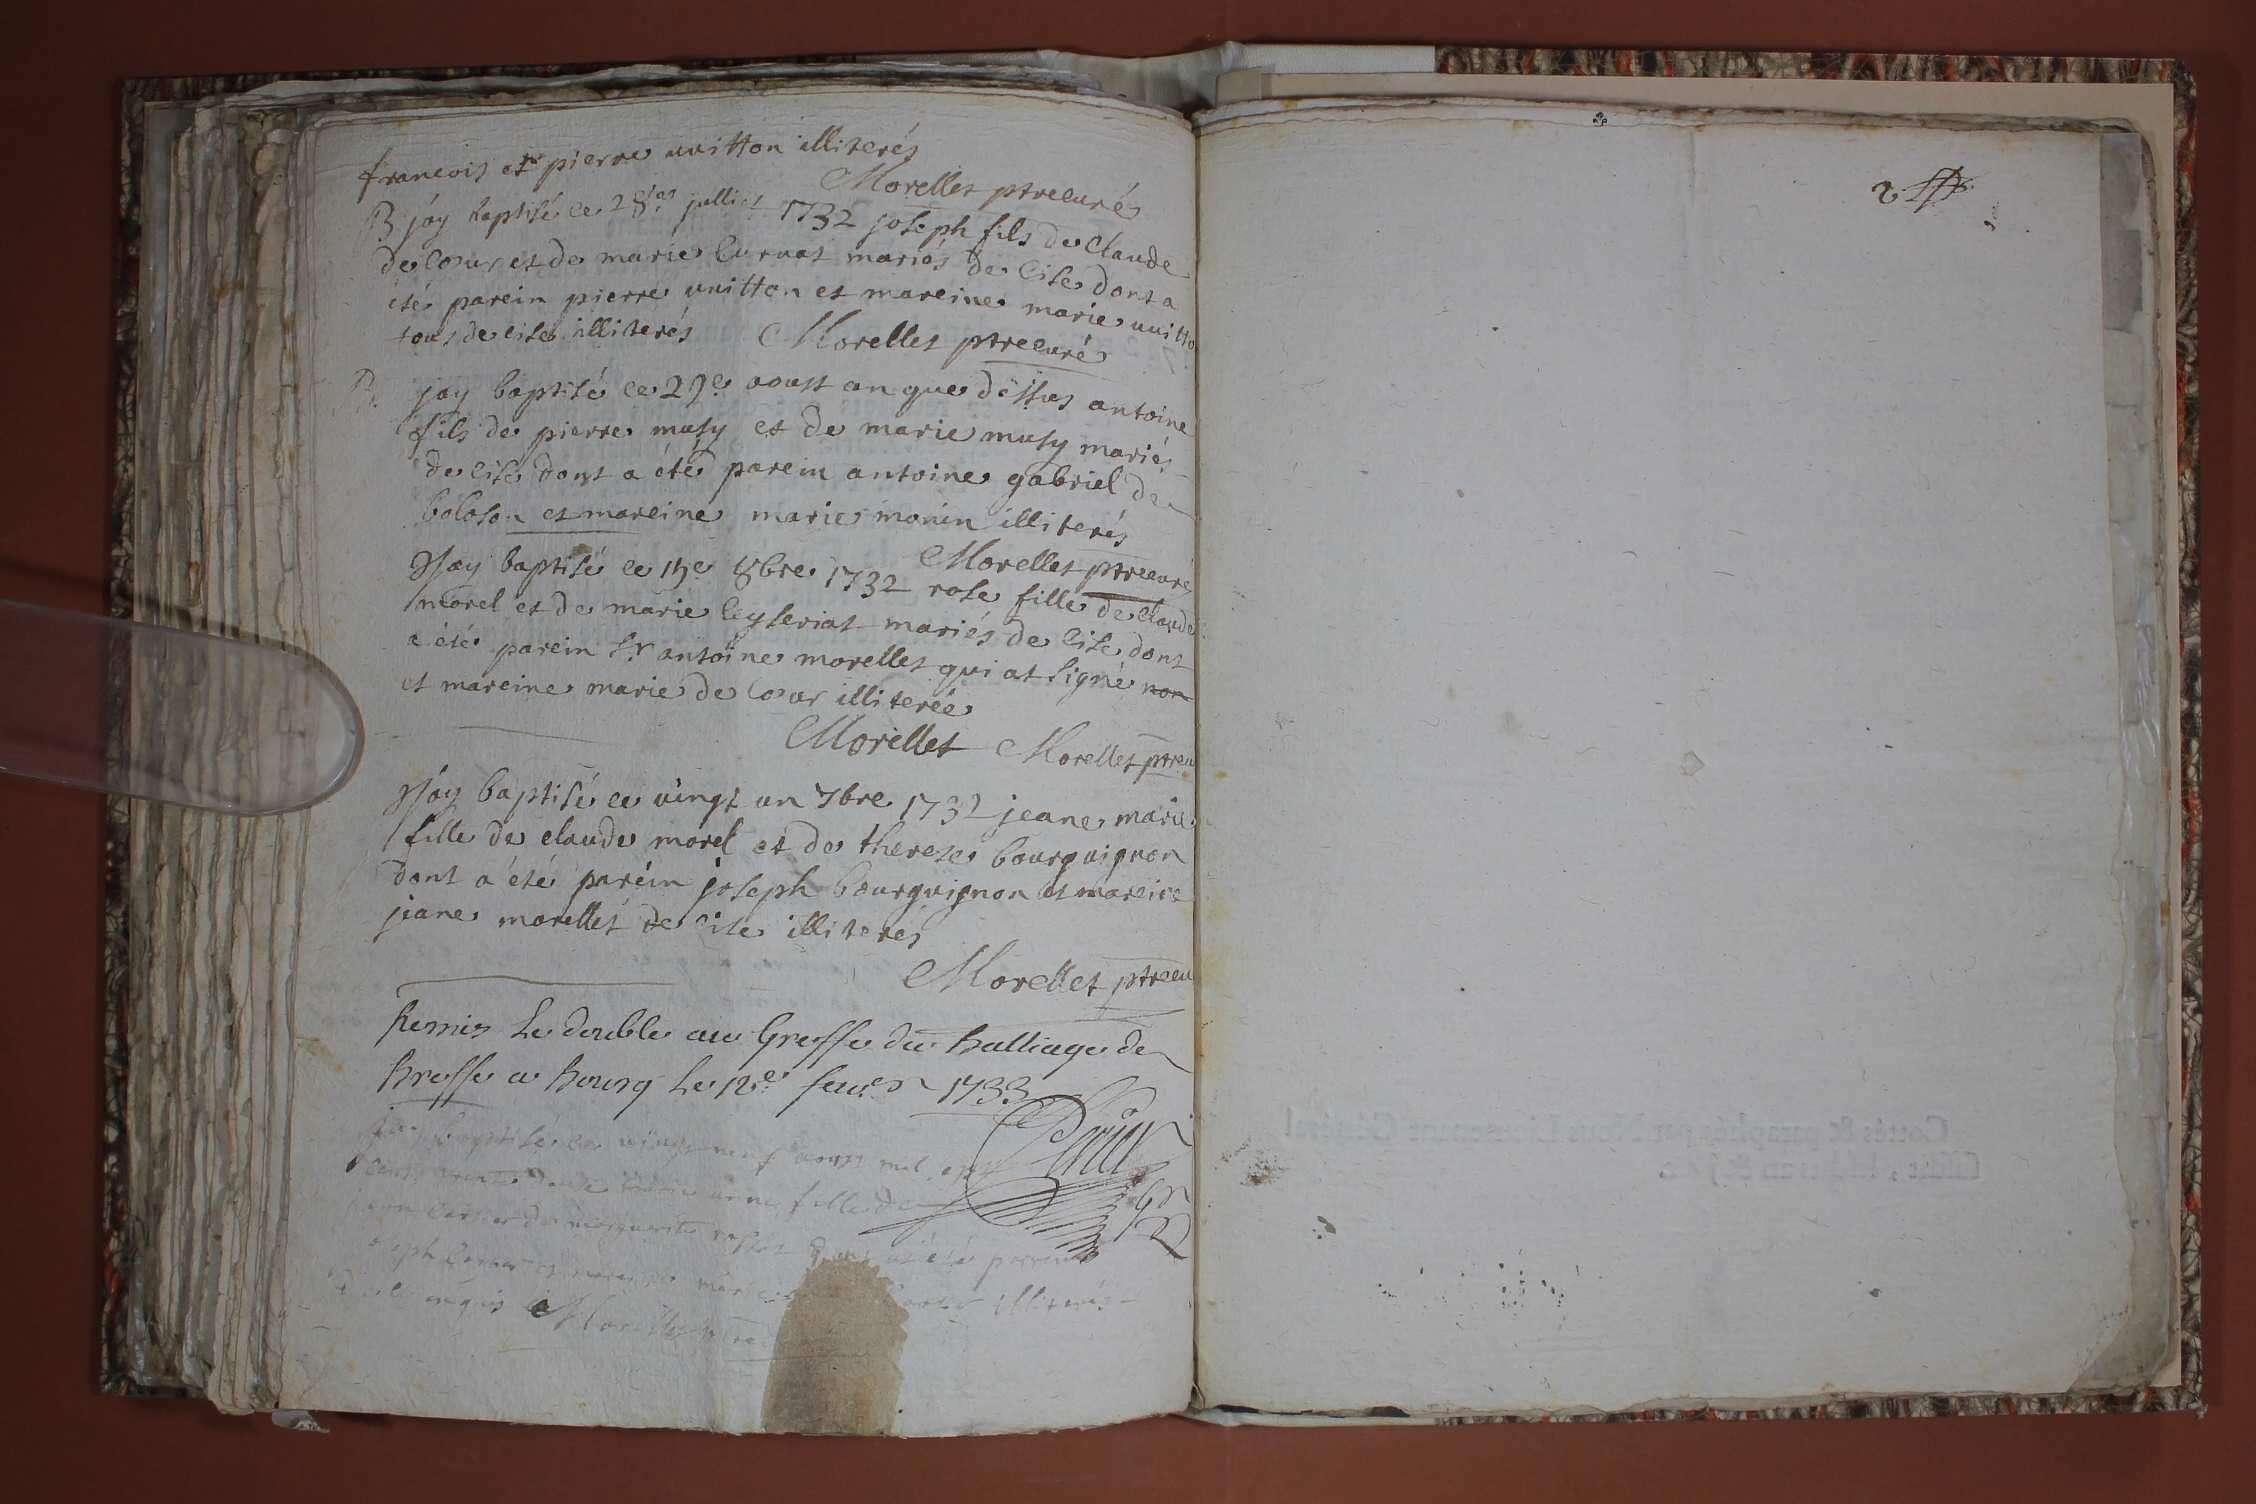 francois et pierre vuitton illiterés
Morellet ptre curé
B jay baptisé ce 28.e julliet 1732 joseph fils de Claude
de lour et de marie curnat mariés de cise dont a
été parein pierre vuitton et mareine marie vuitto
tous de cise illiterés Morellet ptre curé
B. jay baptisé ce 29.e aoust an que dessus antoine
fils de pierre musy et de marie musy mariés
de cise dont a été parein antoine gabriel de
boloson et mareine marie monin illiterés
Morellet ptre curé
Jay baptisé ce 15e 8bre 1732 rose fille de claude
morel et de marie leyseriat mariés de cise dont
a été parein Sr antoine morellet qui at signé non
et mareine marie de lour illiterée
Morellet Morellet ptre cu
Jay baptisé ce vingt un 7bre 1732 jeane marie
fille de claude morel et de therese bourguignon
dont a été parein joseph bourguignon et mareine
jeane morellet de cise illiterés
Morellet ptre cu
Remis Le double au Greffe du balliage de
bresse a bourg Le 12.e feu.er 1733
jay baptisé ce vingt neuf aoust mil sept
cents trente deux marie anne fille de
et de marguerite dont at été parein
joseph et mareine marie illiterés
Morellet ptre
2.
Cottés & paraphés par Nous Lieutenant Général